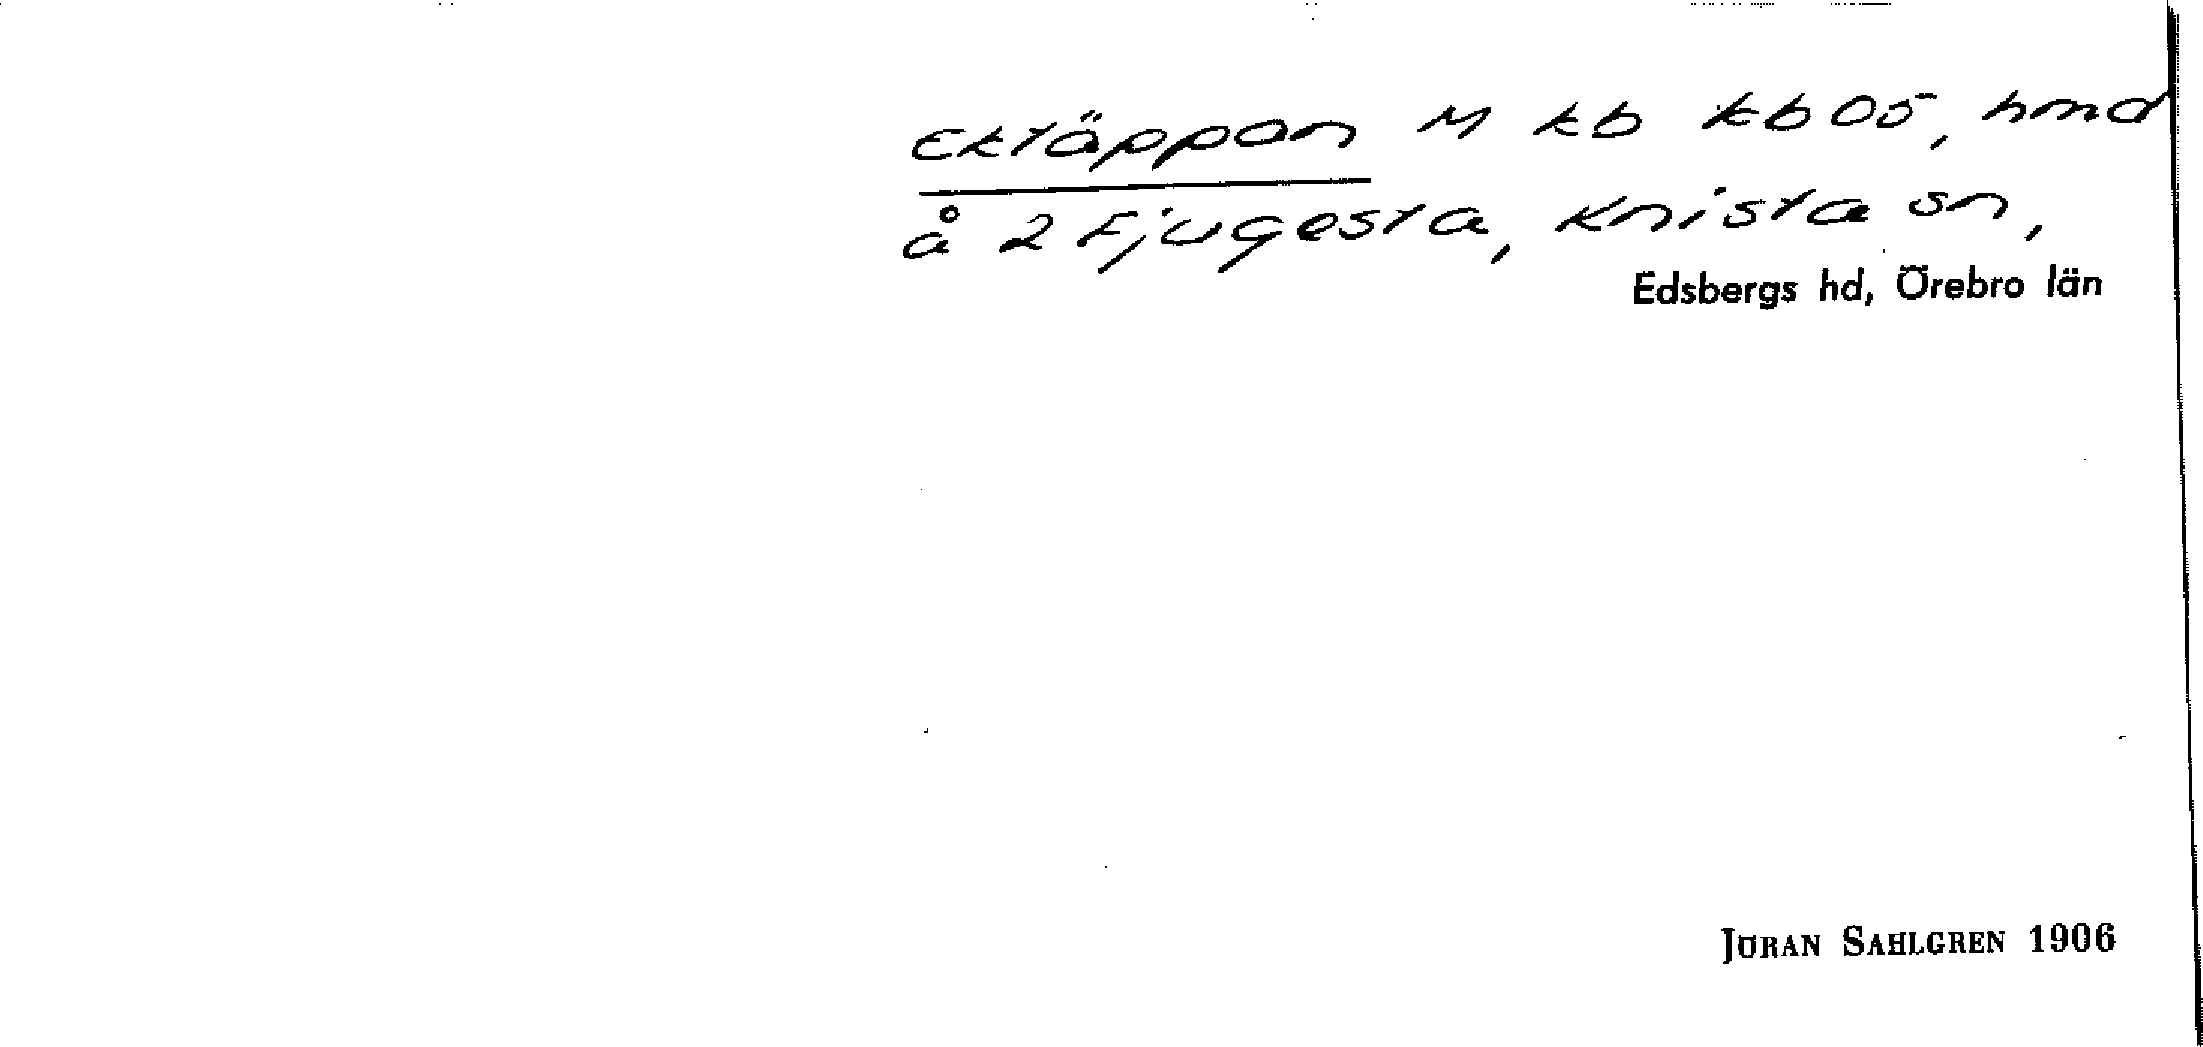 Ektäppan M kb kb 05, hmd
å 2 Fjugesta, Knista sn,
Edsbergs hd, Örebro län
JÖRAN SAHLGREN 1906